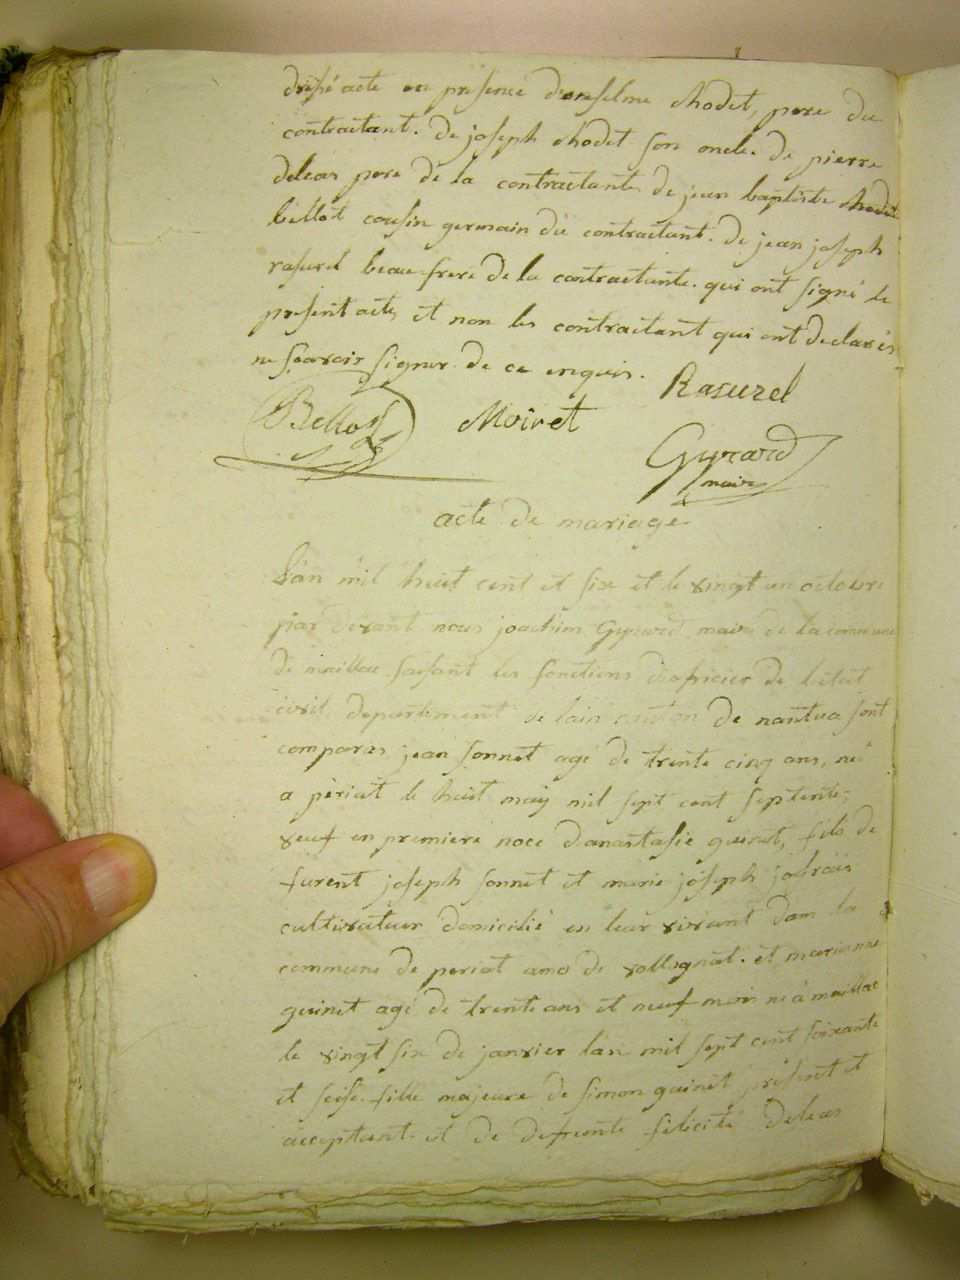 dressé acte en présence d'anselme Chodet, pere du
contractant. de joseph Chodet son oncle. de pierre
deleas pere de la contractante, de jean baptiste Chodet
bellot cousin germain du contractant. de jean joseph
rasurel beau-frere de la contractante. qui ont signé le
present acte, et non les contractant qui ont declarés
ne savoir signer de ce enquis.
Rasurel
Bellod
Moiret
Gyrard
maire
acte de mariage
L'an mil huit cent et six et le vingt un octobre
par devant nous joachim Gyrard maire de la commune
de maillac faisant les fonctions d'oficier de l'état
civil, departement de lain canton de nantua sont
comparus jean sonnet agé de trente cinq ans, né
a periat le huit may mil sept cent septente,
veuf en premiere noce d'anastasie guinet, fils de
furent joseph sonnet et marie joseph
cultivateur domicilié en leur vivant dans la
commune de periat de vollognat. et marianne
guinet agé de trente ans et neuf mois né à maillac
le vingt six de janvier lan mil sept cent soixante
et seise. fille majeure de simon guinet présent et
acceptant. et de defunte félicité deleas